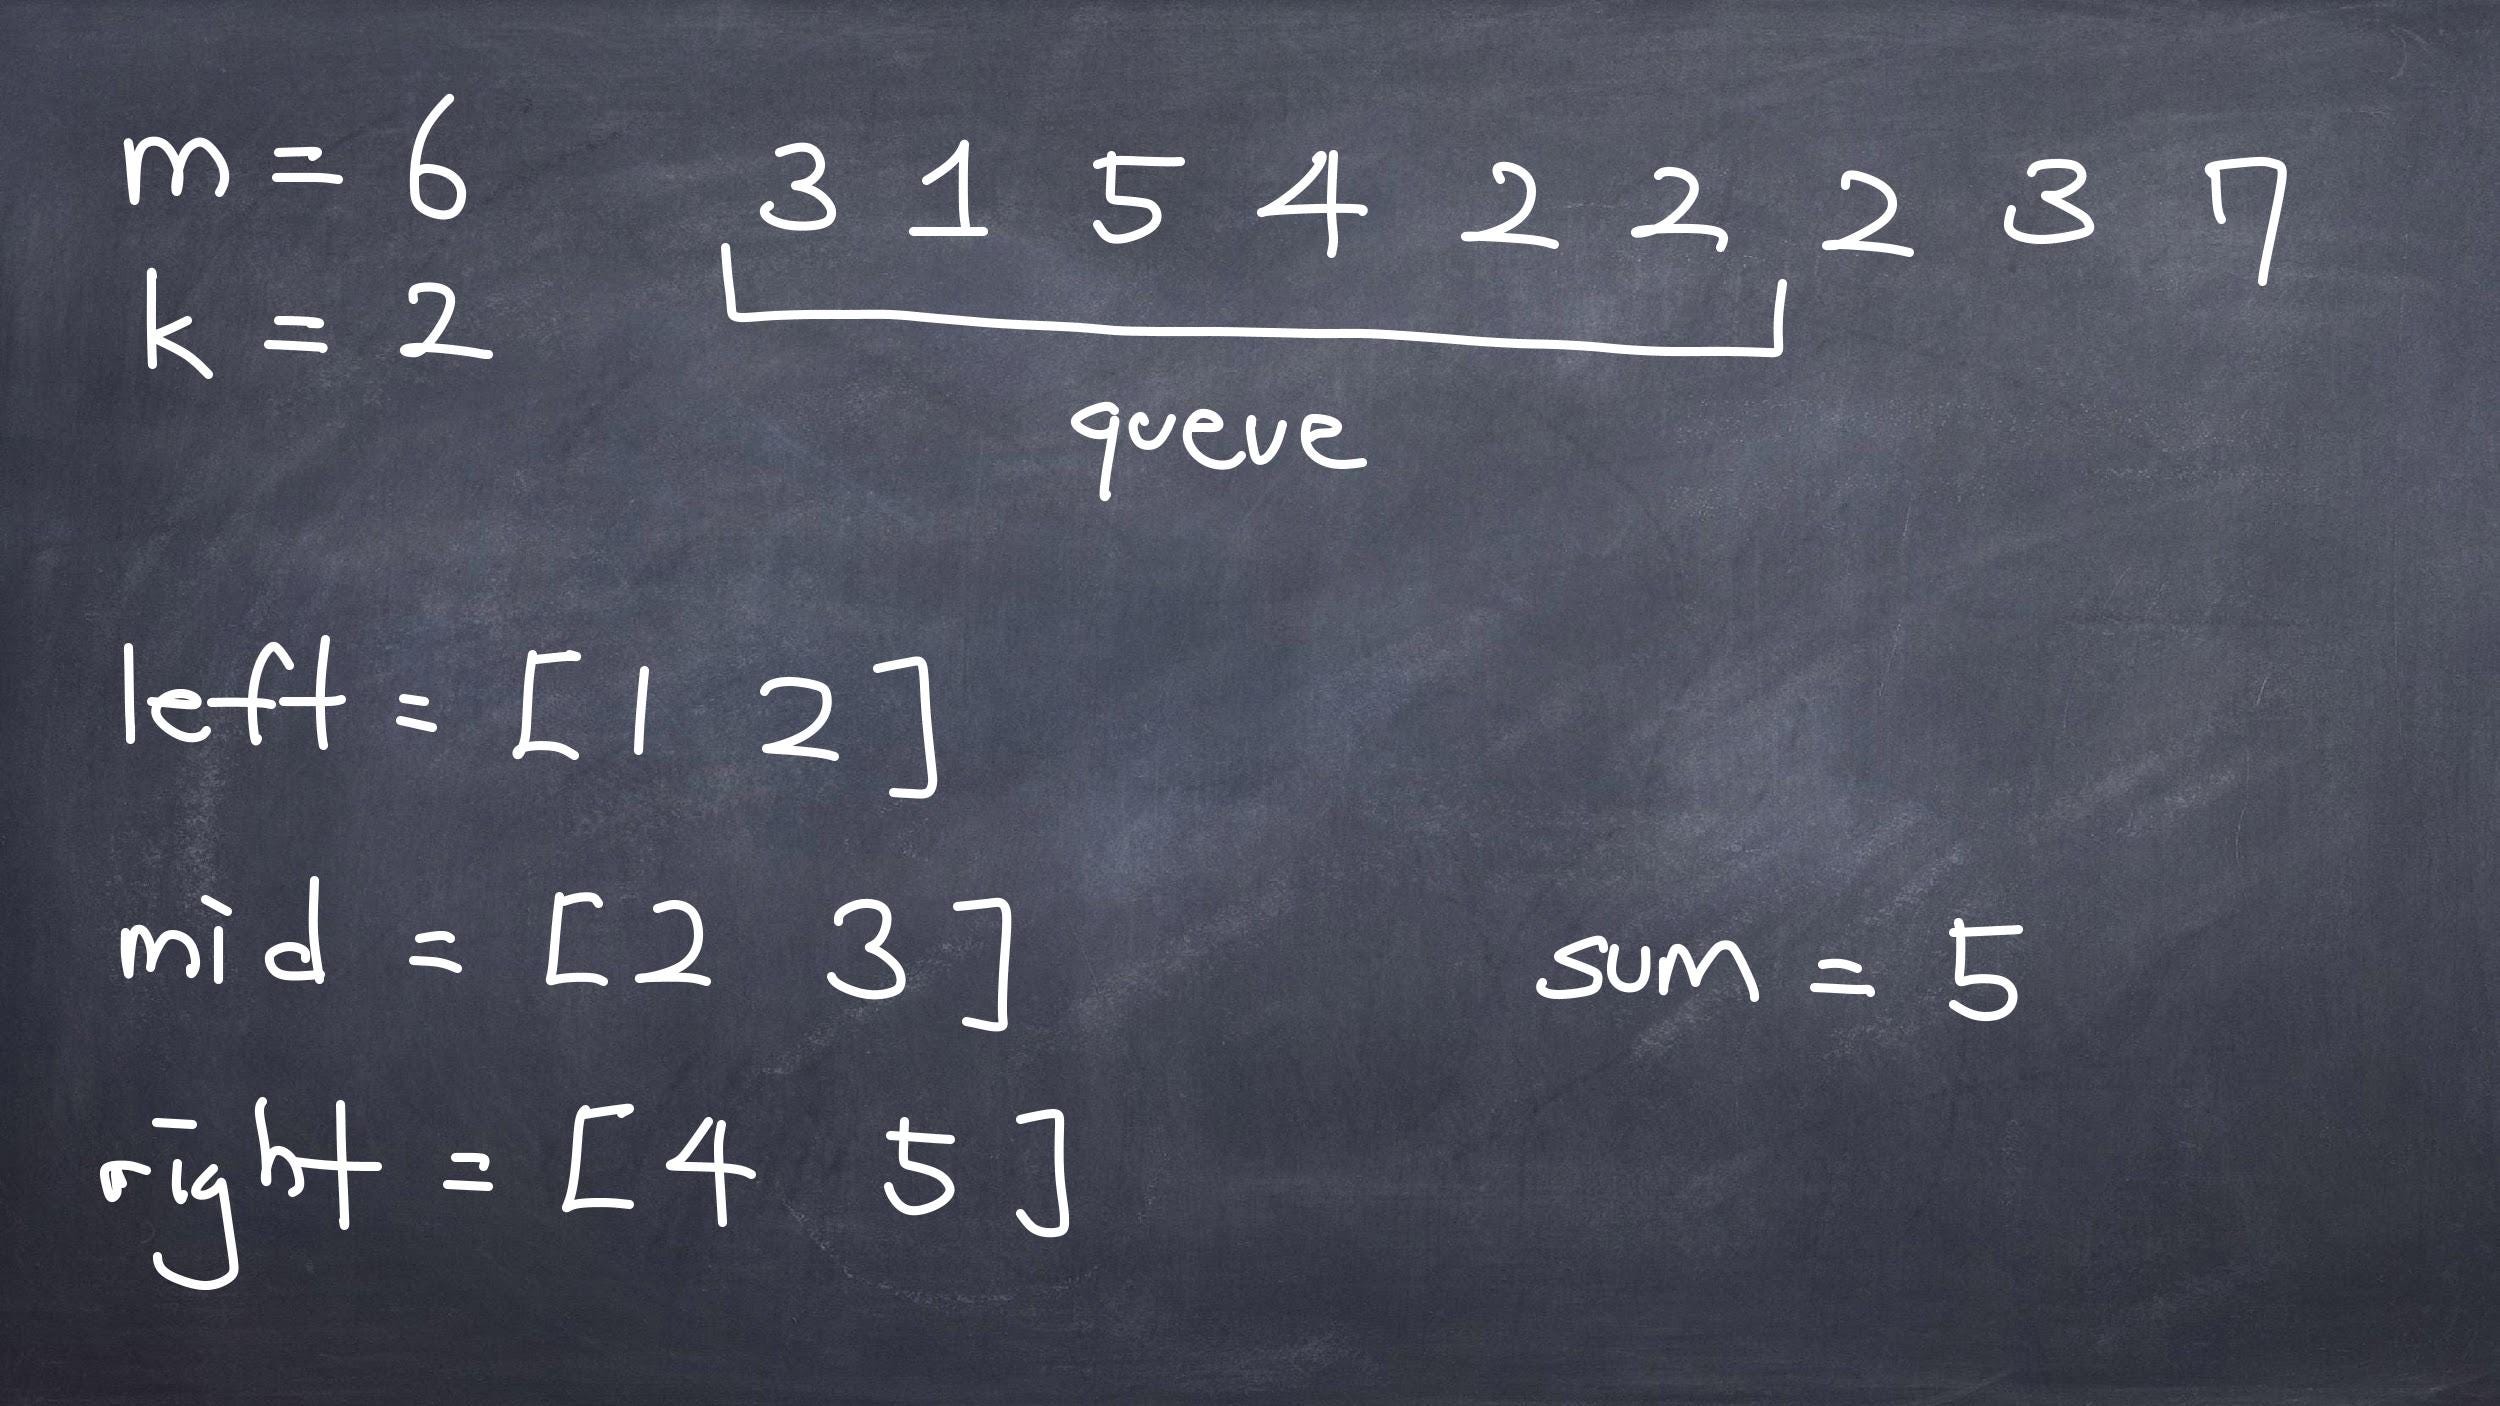 m = 6
3 1 5 4 2 2 2 3 7
k = 2
queue
left = [1 2]
mid = [2 3]
sum = 5
right = [4 5]